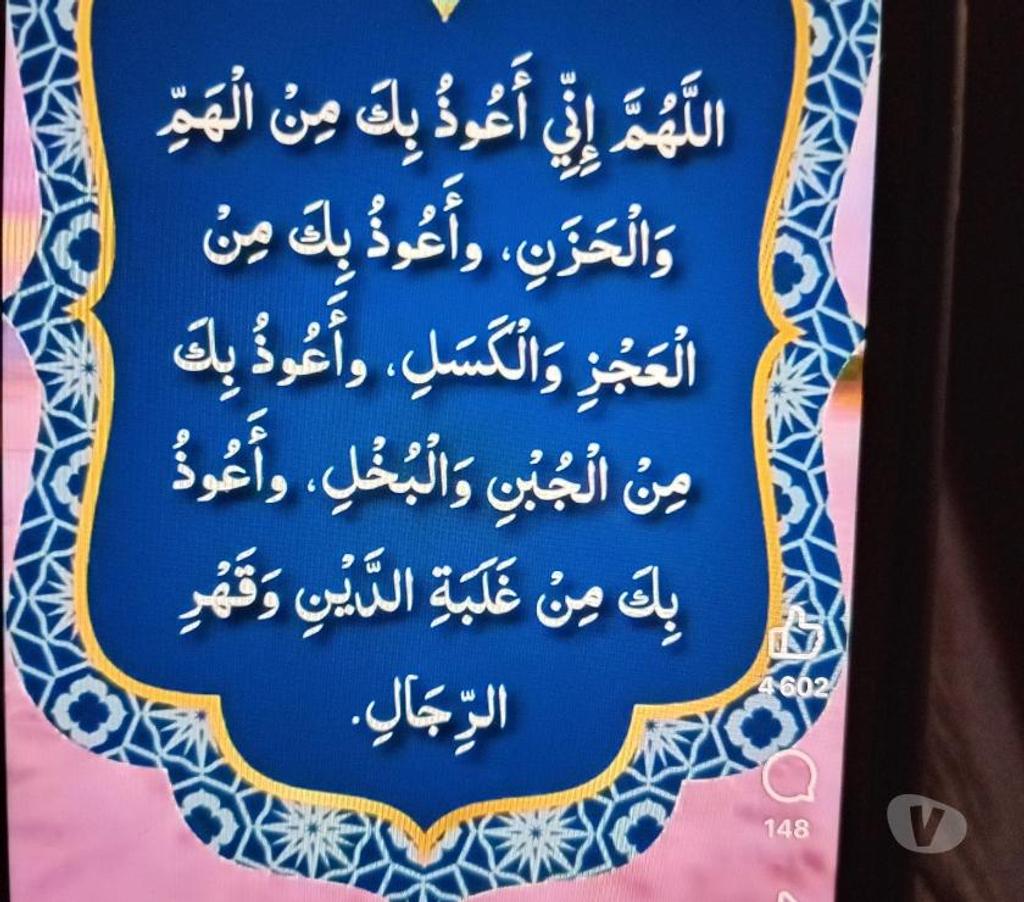 اللَّهُمَّ إِنِّي أَعُوذُ بِكَ مِنْ الْهَمِّ
وَالْحَزَنِ، وأَعُوذُ بِكَ مِنْ
الْعَجْزِ وَالْكَسَلِ، وأَعُوذُ بِكَ
مِنْ الْجُبْنِ وَالْبُخْلِ، وأَعُوذُ
بِكَ مِنْ غَلَبَةِ الدَّيْنِ وَقَهْرِ
الرِّجَالِ.
4 602
148
V